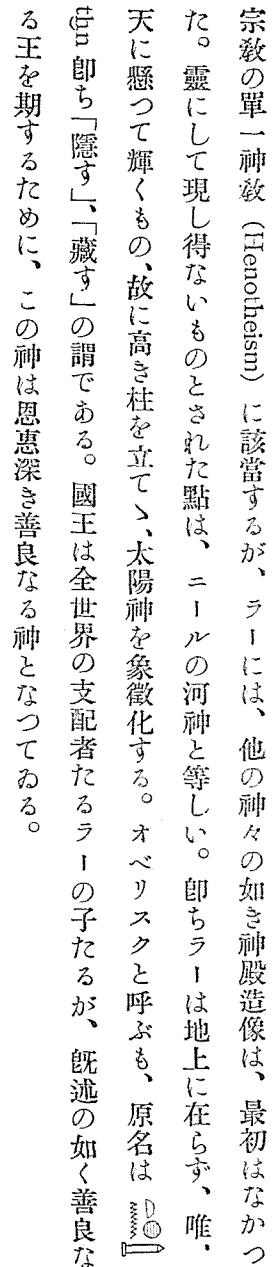 宗敎の單一神敎（Henotheism）に該當するが、ラーには、他の神々の如き神殿造像は、最初はなかつ
た。靈にして現し得ないものとされた點は、ニールの河神と等しい。卽ちラーは地上に在らず、唯、
天に懸つて輝くもの、故に高き柱を立てゝ、太陽神を象徵化する。オベリスクと呼ぶも、原名は
thn 卽ち「隱す」、「藏す」の謂である。國王は全世界の支配者たるラーの子たるが、旣述の如く善良な
る王を期するために、この神は恩惠深き善良なる神となつてゐる。